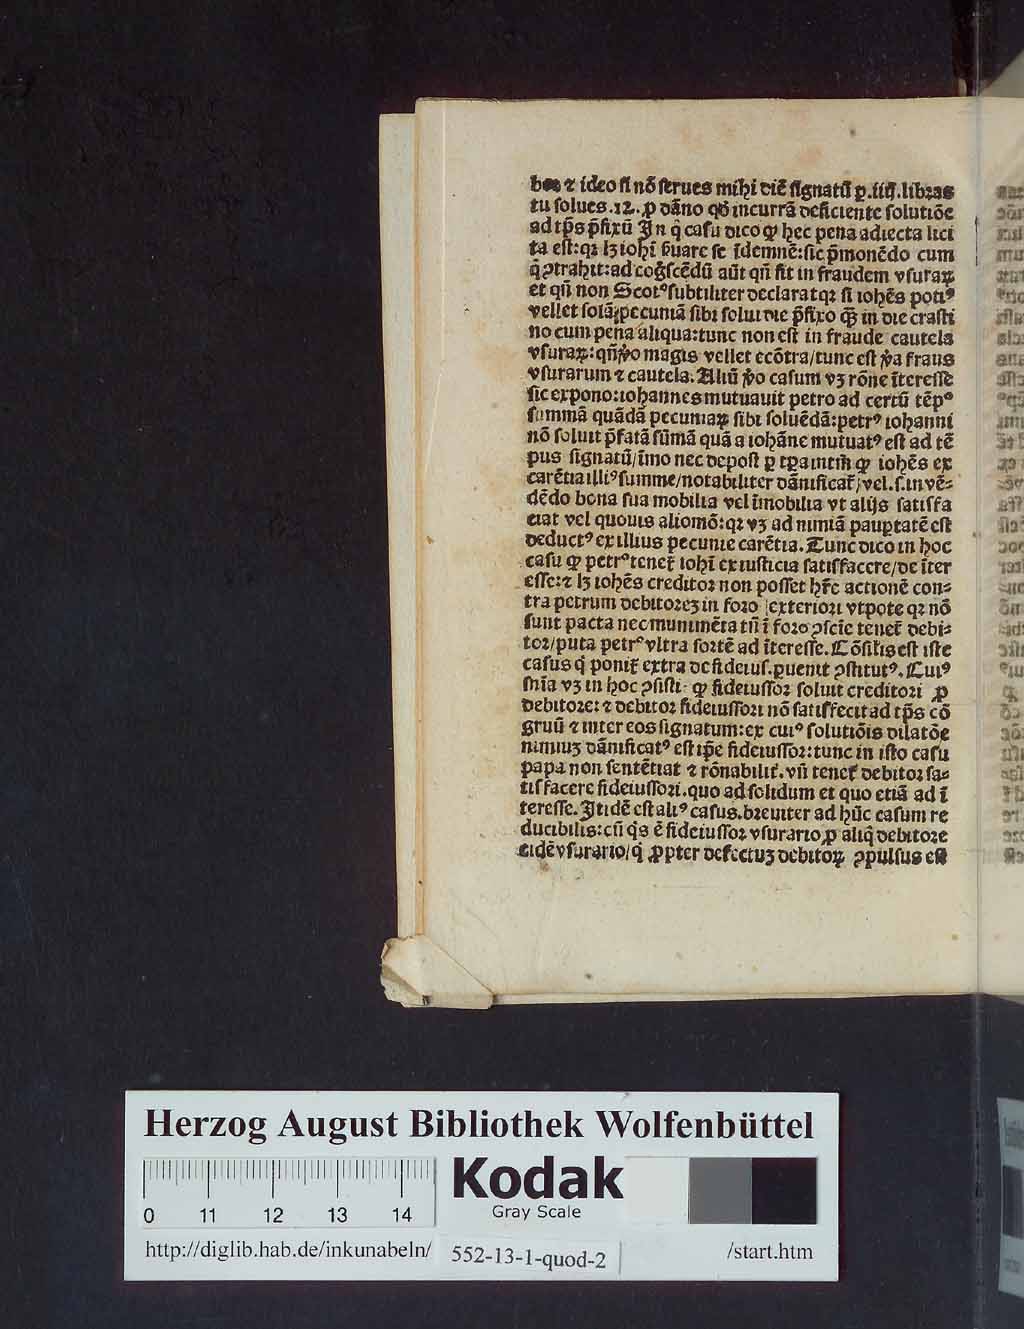 bos ⁊ ideo si nõ serues mihi diẽ signatũ ꝑ .iiij. libras
tu solues .12. ꝓ dãno qđ incurrã deficiente solutiõe
ad tp̃s p̃fixũ In q̃ casu dico ꝙ hec pena adiecta lici
ta est: qꝛ lꝫ iohi᷒ ẜuare se ĩdemnẽ: sic p̃monẽdo cum
q̃ ꝯtrahit: ad cog̃scẽdũ aũt qñ fit in fraudem vsuraꝝ
et qñ non Scotꝰ subtiliter declarat qꝛ si iohẽs potiꝰ
vellet solã pecuniã sibi solui die p̃fixo q̃ꝫ in die crasti
no cum pena aliqua: tunc non est in fraude cautela
vsuraꝝ: qñ ꝟo magis vellet ecõtra/ tunc est ꝟa fraus
vsurarum ⁊ cautela. Aliũ ꝟo casum vꝫ rõne ĩteresse
sic expono: iohannes mutuauit petro ad certũ tẽpꝰ
summã quãdã pecuniaꝝ sibi soluẽdã: petrꝰ iohanni
nõ soluit p̃fatã sũmã quã a iohãne mutuatꝰ est ad tẽ
pus signatũ/ ĩmo nec depost ꝑ tꝑa intim̃ ꝙ iohẽs ex
carẽtia illiꝰ summe/ notabiliter dãnificat̃/ vel .s. in vẽ-
dẽdo bona sua mobilia vel ĩmobilia vt alijs satisfa
ciat vel quouis aliomõ: qꝛ vꝫ ad nimiã pauꝑtatẽ est
deductꝰ ex illius pecunie carẽtia. Tunc dico in hoc
casu ꝙ petrꝰ tenet̃ iohĩ ex iusticia satisfacere/ de ĩter
esse: ⁊ lꝫ iohẽs creditor non posset hr̃e actionẽ con-
tra petrum debitorẽ in foro exteriori vtpote qꝛ nõ
sunt pacta nec munimẽta tñ ĩ foro ꝯscĩe tenet̃ debi-
tor/ puta petrꝰ vltra sortẽ ad ĩteresse. Cõsil̃is est iste
casus q̃ ponit̃ extra de fideius. ꝑuenit ꝯstitutꝰ. Cuiꝰ
sñia vꝫ in hoc ꝯsisti ꝙ fideiussor soluit creditori ꝓ
debitore: ⁊ debitor fideiussori nõ satisfecit ad tp̃s cõ
gruũ ⁊ inter eos signatum: ex cuiꝰ solutiõis dilatõe
nimiuꝫ dãnificatꝰ est ip̃e fideiussor: tunc in isto casu
papa non sentẽtiat ⁊ rõnabilit̃. vñ tenet̃ debitor sa-
tisfacere fideiussori. quo ad solidum et quo etiã ad ĩ
teresse. Itidẽ est aliꝰ casus. breuiter ad hũc casum re
ducibilis: cũ q̃s ẽ fideiussor vsurario ꝓ aliq̃ debitore
eidẽ vsurario/ q̃ ꝓpter defectuꝫ debitoꝝ ꝯpulsus est
Herzog August Bibliothek Wolfenbüttel
0 11 12 13 14
Kodak
Gray Scale
http://diglib.hab.de/inkunabeln/ 552-13-1-quod-2 /start.htm